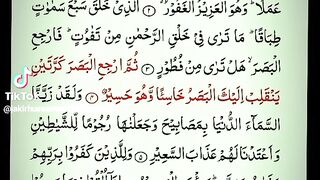 عَمَلًا ؕ وَهُوَ الۡعَزِیۡزُ الۡغَفُوۡرُ ۙ﴿۲﴾ الَّذِیۡ خَلَقَ سَبۡعَ سَمٰوٰتٍ
طِبَاقًا ؕ مَا تَرٰی فِیۡ خَلۡقِ الرَّحۡمٰنِ مِنۡ تَفٰوُتٍ ؕ فَارۡجِعِ
الۡبَصَرَ ۙ هَلۡ تَرٰی مِنۡ فُطُوۡرٍ ﴿۳﴾ ثُمَّ ارۡجِعِ الۡبَصَرَ کَرَّتَیۡنِ
یَنۡقَلِبۡ اِلَیۡکَ الۡبَصَرُ خَاسِئًا وَّهُوَ حَسِیۡرٌ ﴿۴﴾ وَلَقَدۡ زَیَّنَّا
السَّمَآءَ الدُّنۡیَا بِمَصَابِیۡحَ وَجَعَلۡنٰهَا رُجُوۡمًا لِّلشَّیٰطِیۡنِ
وَاَعۡتَدۡنَا لَهُمۡ عَذَابَ السَّعِیۡرِ ﴿۵﴾ وَلِلَّذِیۡنَ کَفَرُوۡا بِرَبِّهِمۡ
TikTok